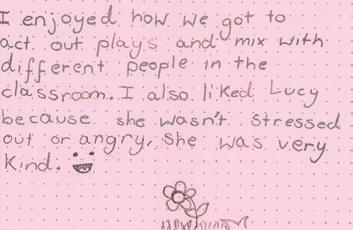 I enjoyed how we got to
act out plays and mix with
different people in the
classroom. I also liked Lucy
because she wasn't stressed
out or angry, she was very
kind.